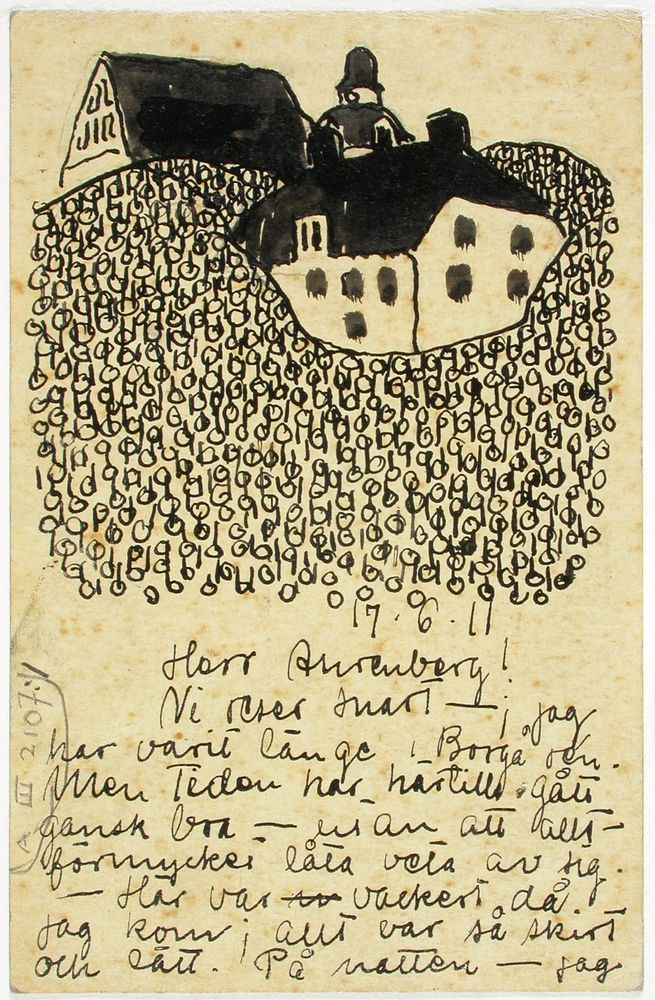 17.6.11
Herr Ahrenberg!
Vi reser snart – ; jag
har varit länge i Borgå
Men Tiden har härtills gått
gansk bra – utan att allt-
förmycket låta veta av sig.
– Här var vackert då
jag kom; allt var så skirt
och lätt. På natten – jag
A III 2107: